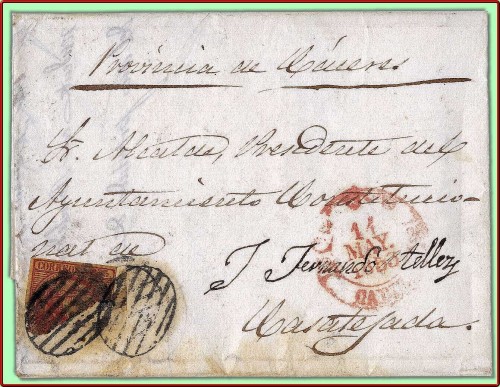 Provincia de Cáceres
Sr. Alcalde, Presidente del
Ayuntamiento Constitucio-
nal de
11
MAY
J Fernando Tellez
Casatejada.
CORREOS